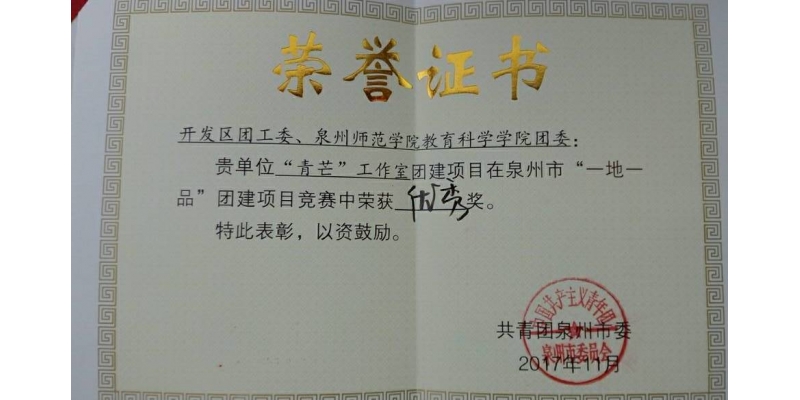 荣誉证书
开发区团工委、泉州师范学院教育科学学院团委：
贵单位“青芒”工作室团建项目在泉州市“一地一
品”团建项目竞赛中荣获优秀奖。
特此表彰，以资鼓励。
中国共产主义青年团
泉州市委员会
共青团泉州市委
2017年11月